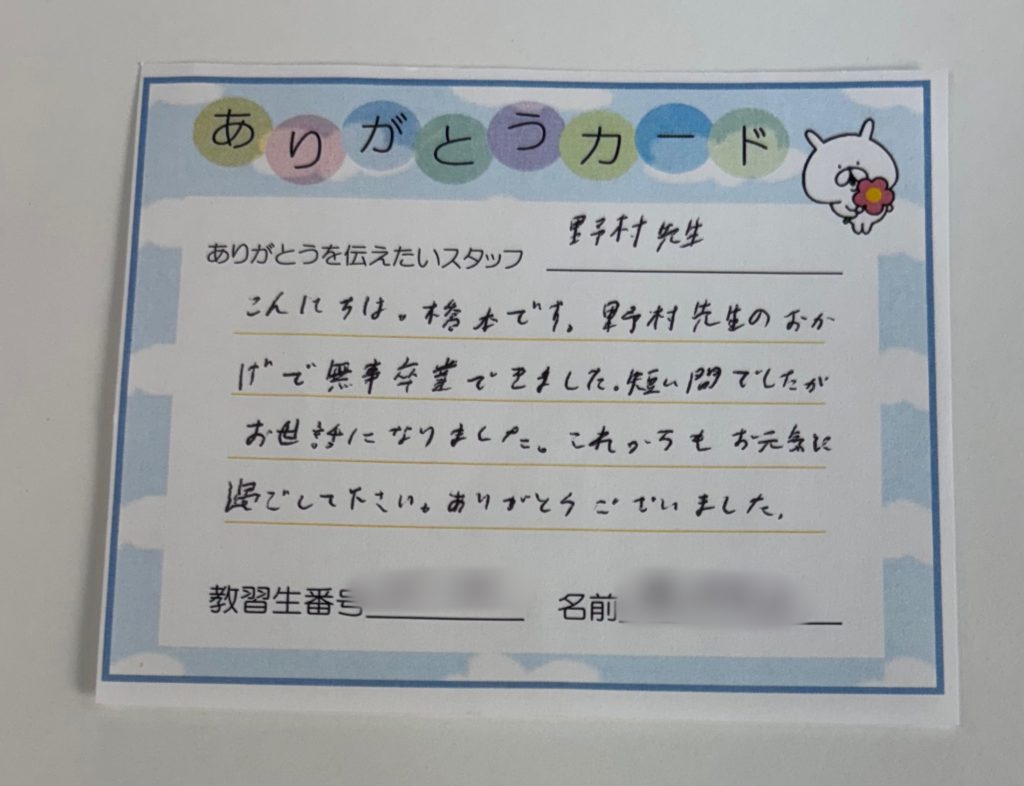 ありがとうカード
ありがとうを伝えたいスタッフ 野村先生
こんにちは。橋本です。野村先生のおか
げで無事卒業できました。短い間でしたが
お世話になりました。これからもお元気に
過ごして下さい。ありがとうございました。
教習生番号
名前